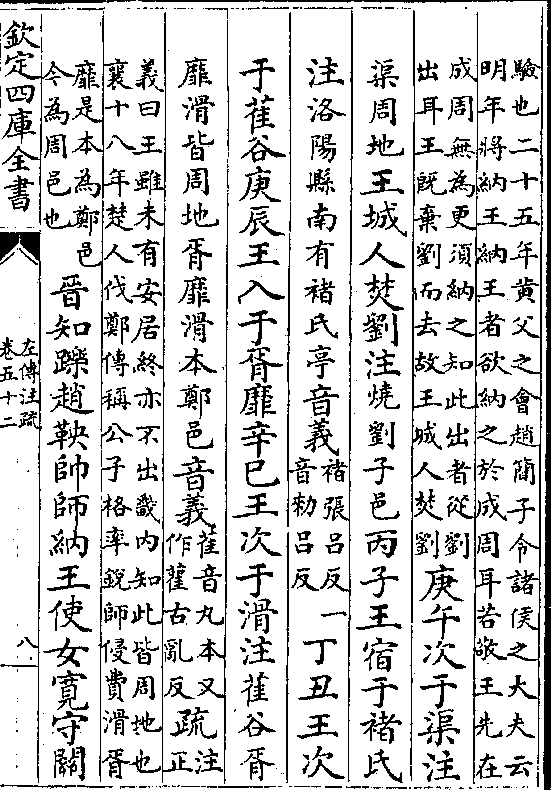 驗也二十五年黄父之會趙簡子令諸侯之大夫云
明年將納王納王者欲納之於成周耳若敬王先在
成周無為更須納之知此出者從劉
出耳王既棄劉而去故王城人焚劉
庚午次于渠注
渠周地王城人焚劉注燒劉子邑丙子王宿于褚氏
注洛陽縣南有褚氏亭音義
褚張呂反一
音勑呂反
丁丑王次
于萑谷庚辰王入于胥靡辛巳王次于滑注萑谷胥
靡滑皆周地胥靡滑本鄭邑音義
萑音丸本又
作雚古亂反
疏
注
正
義曰王雖未有安居終亦不出畿内知此皆周地也
襄十八年楚人伐鄭傳稱公子格率銳師侵費滑胥
靡是本為鄭邑
今為周邑也
晉知躒趙鞅帥師納王使女寛守關
欽定四庫全書
左傳注疏
卷五十二
八